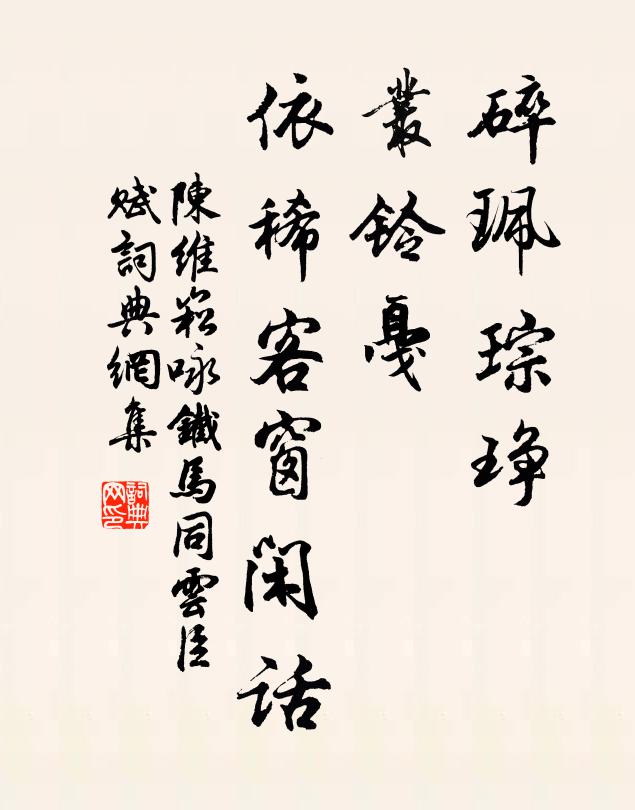 碎珮琮琤
叢鈴戛
依稀客窗閑話
陳維崧咏鐵馬同雲臣
賦詞典網集
詞典网印